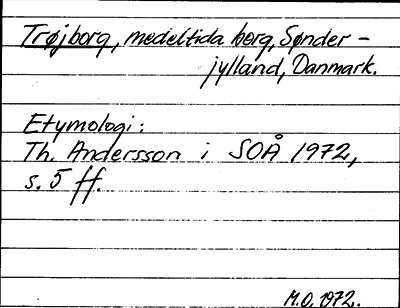 Trøjborg, medeltida borg, Sønder-
jylland, Danmark.
Etymologi:
Th. Andersson i SOÅ 1972,
s. 5 ff.
M.O. 1972.